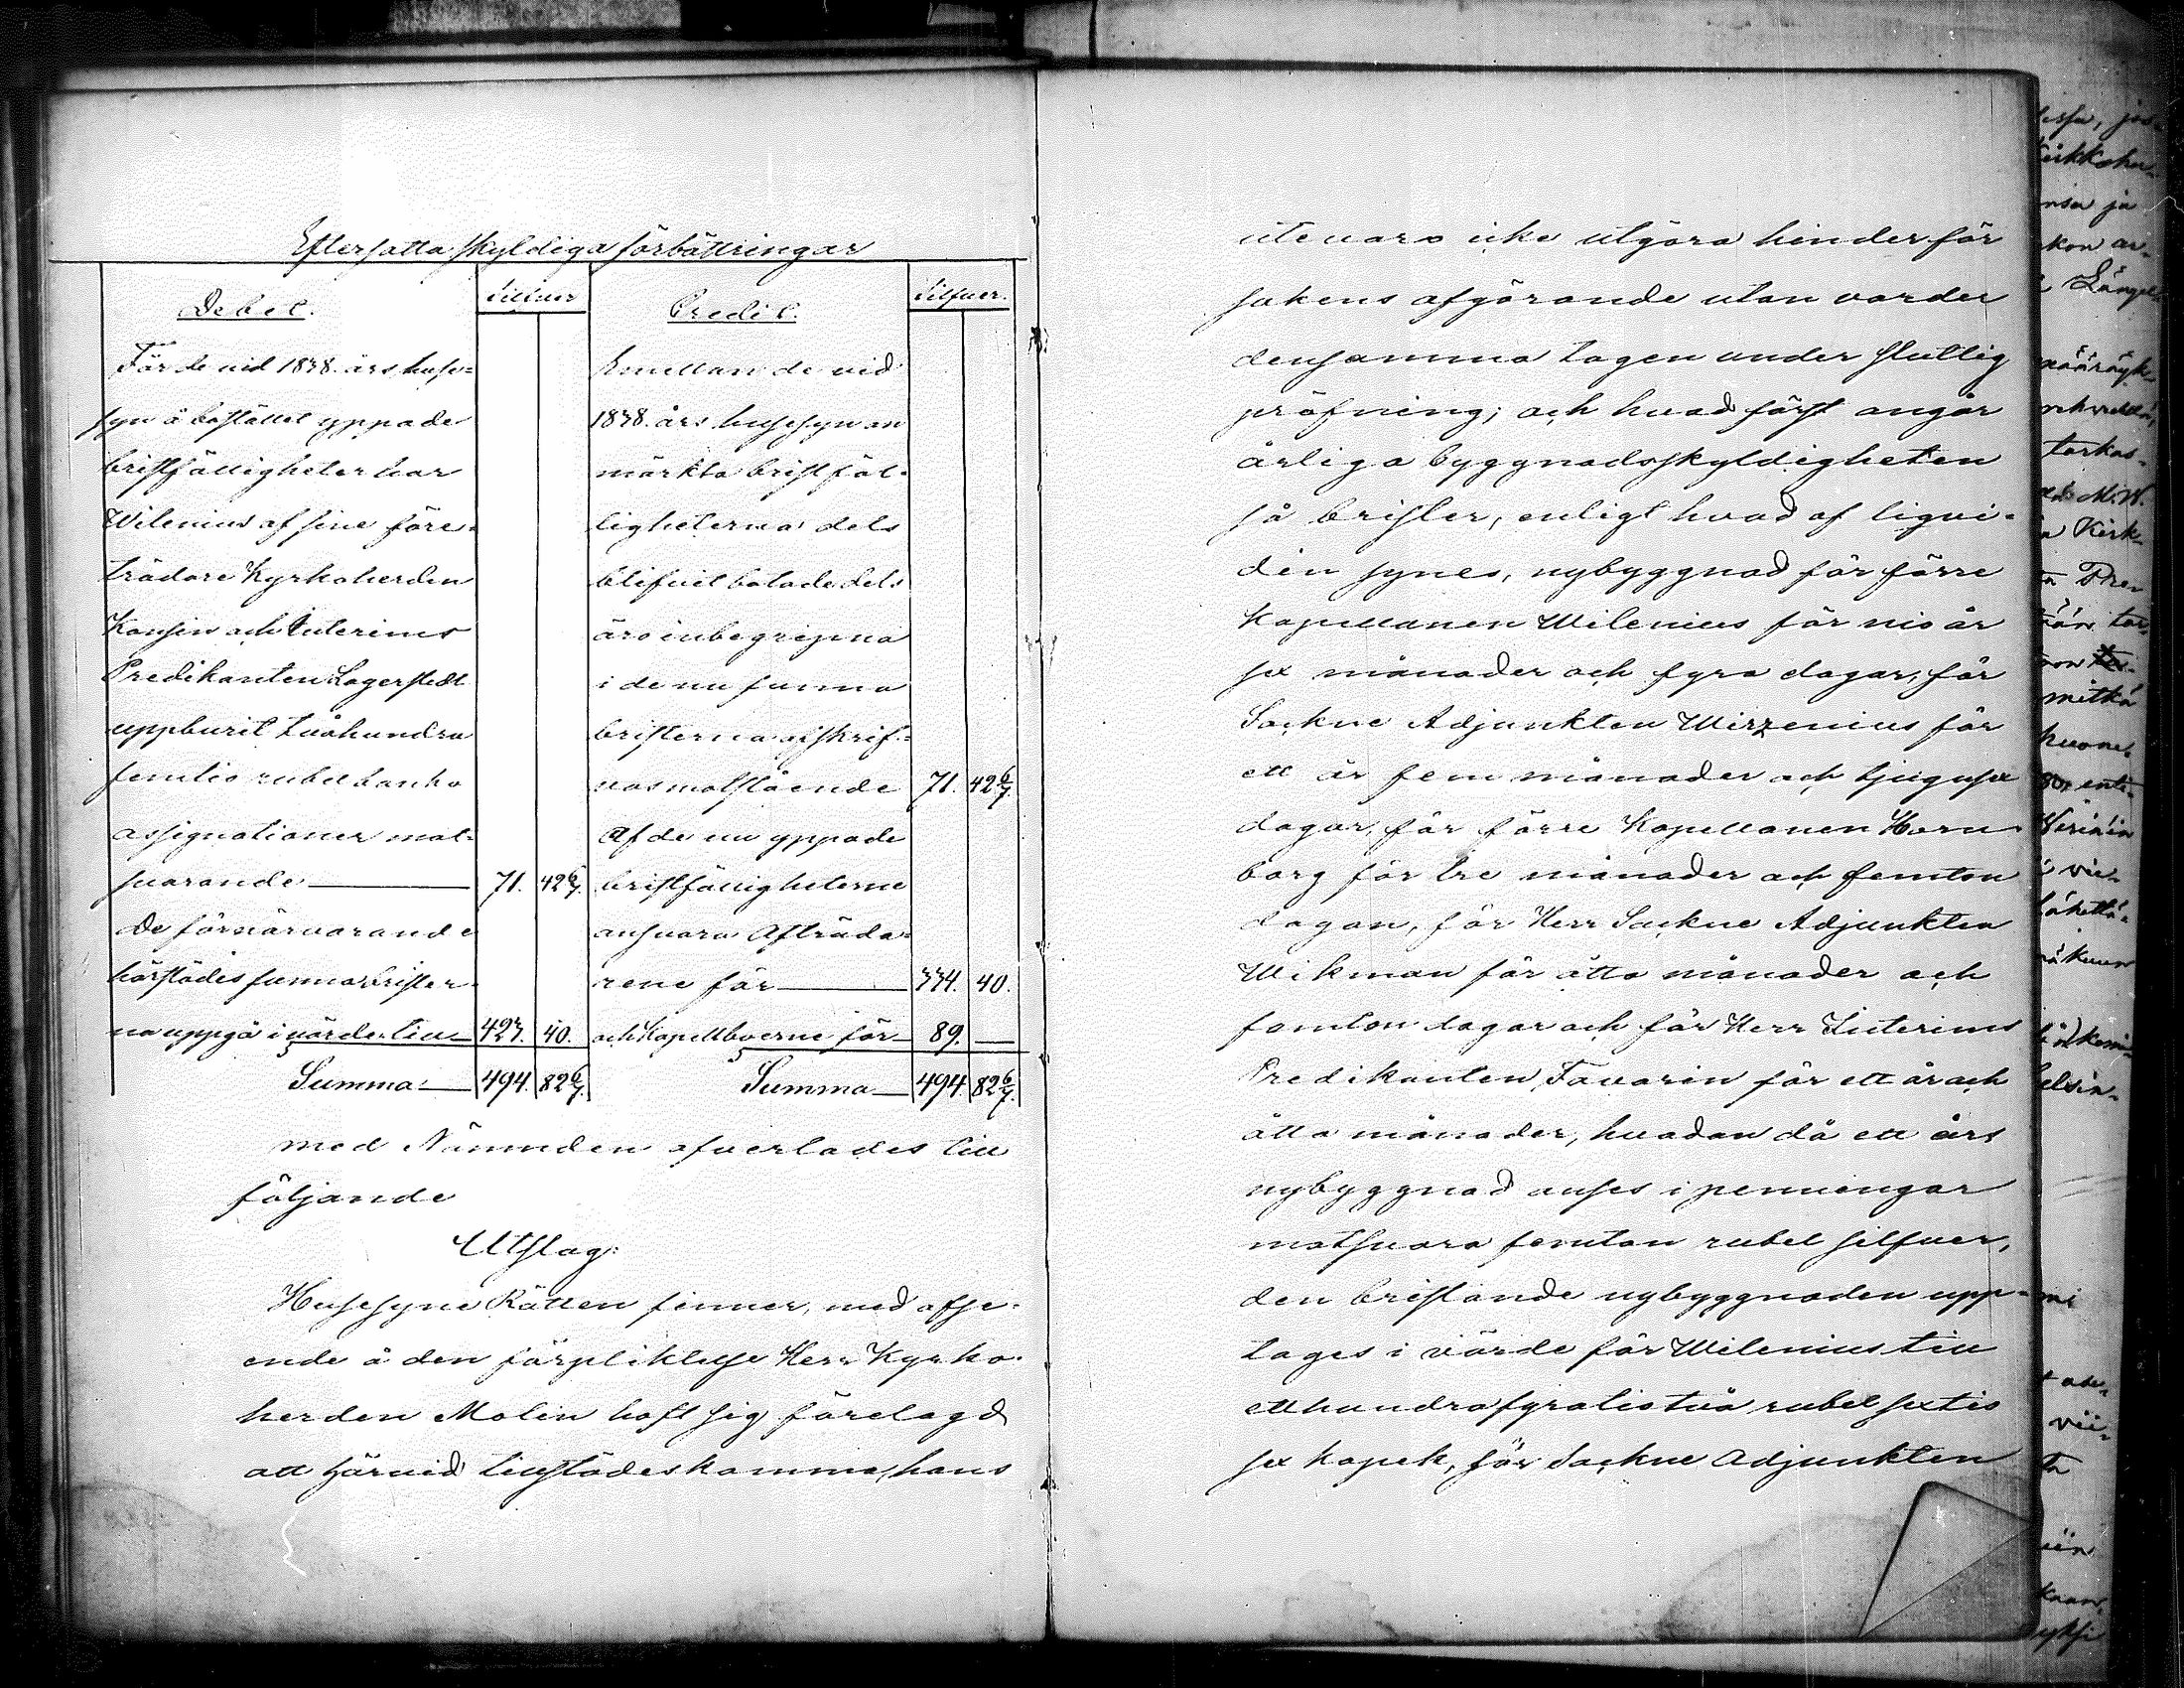 Eftersatta skyldiga förbättringar
Debet.
Silfver
För de vid 1838. års huse-
syn å bostället yppade
bristfälligheter har
Wilenius af sine före-
trädare Kyrkoherden
Konsin och Interims
Predikanten Lagerstedt
uppburit tvåhundra
femtio rubel banko
assignationer mot-
svarande — 71. 42 6/7.
De förnärvarande
härstädes funna brister-
na uppgå i värde till 423. 40.
Summa — 494. 82 6/7.
Credit.
Silfver.
Emellan de vid
1838. års husesyn an
märkta bristfäl-
ligheterna dels
blifvit botade dels
äro inbegripna
i de nu funna
bristerna afskrif-
vas motstående 71. 42 6/7.
Af de nu yppade
bristfälligheterne
ansvara Afträda-
rene för — 334. 40.
och Kapellboerne för 89. —
Summa — 494. 82 6/7.
med Nämnden afverlades till
följande
Utslag:
Husesyne Rätten finner, med afse-
ende å den förpliktelse Herr Kyrko-
herden Molin haft sig förelagd
att härvid tillstädeskomma, hans
utevaro icke utgöra hinder för
sakens afgörande utan varder
densamma tagen under slutlig
pröfning; och hvad först angår
årliga byggnadsskyldigheten
så brister, enligt hvad af liqvi-
den synes, nybyggnad för förre
Kapellanen Wilenius för nio år
sex månader och fyra dagar, för
Sockne Adjunkten Wirzenius för
ett år fem månader och tjugusex
dagar, för förre Kapellanen Horn-
borg för tre månader och femton
dagar, för Herr Sockne Adjunkten
Wikman för åtta månader och
femton dagar och för Herr Interims
Predikanten Favorin för ett år och
åtta månader, hvadan då ett års
nybyggnad anses i penningar
motsvara femton rubel silfver,
den bristande nybyggnaden upp-
tages i värde för Wilenius till
etthundrafyratiotvå rubel sextio
sex kopek, för Sockne Adjunkten